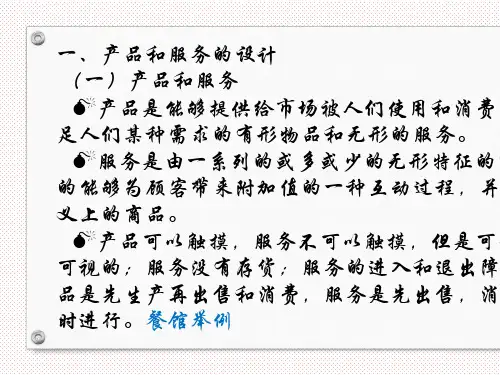 一、产品和服务的设计
（一）产品和服务
产品是能够提供给市场被人们使用和消费
足人们某种需求的有形物品和无形的服务。
服务是由一系列的或多或少的无形特征的
的能够为顾客带来附加值的一种互动过程，并
义上的商品。
产品可以触摸，服务不可以触摸，但是可
可视的；服务没有存货；服务的进入和退出障
品是先生产再出售和消费，服务是先出售，消
时进行。餐馆举例